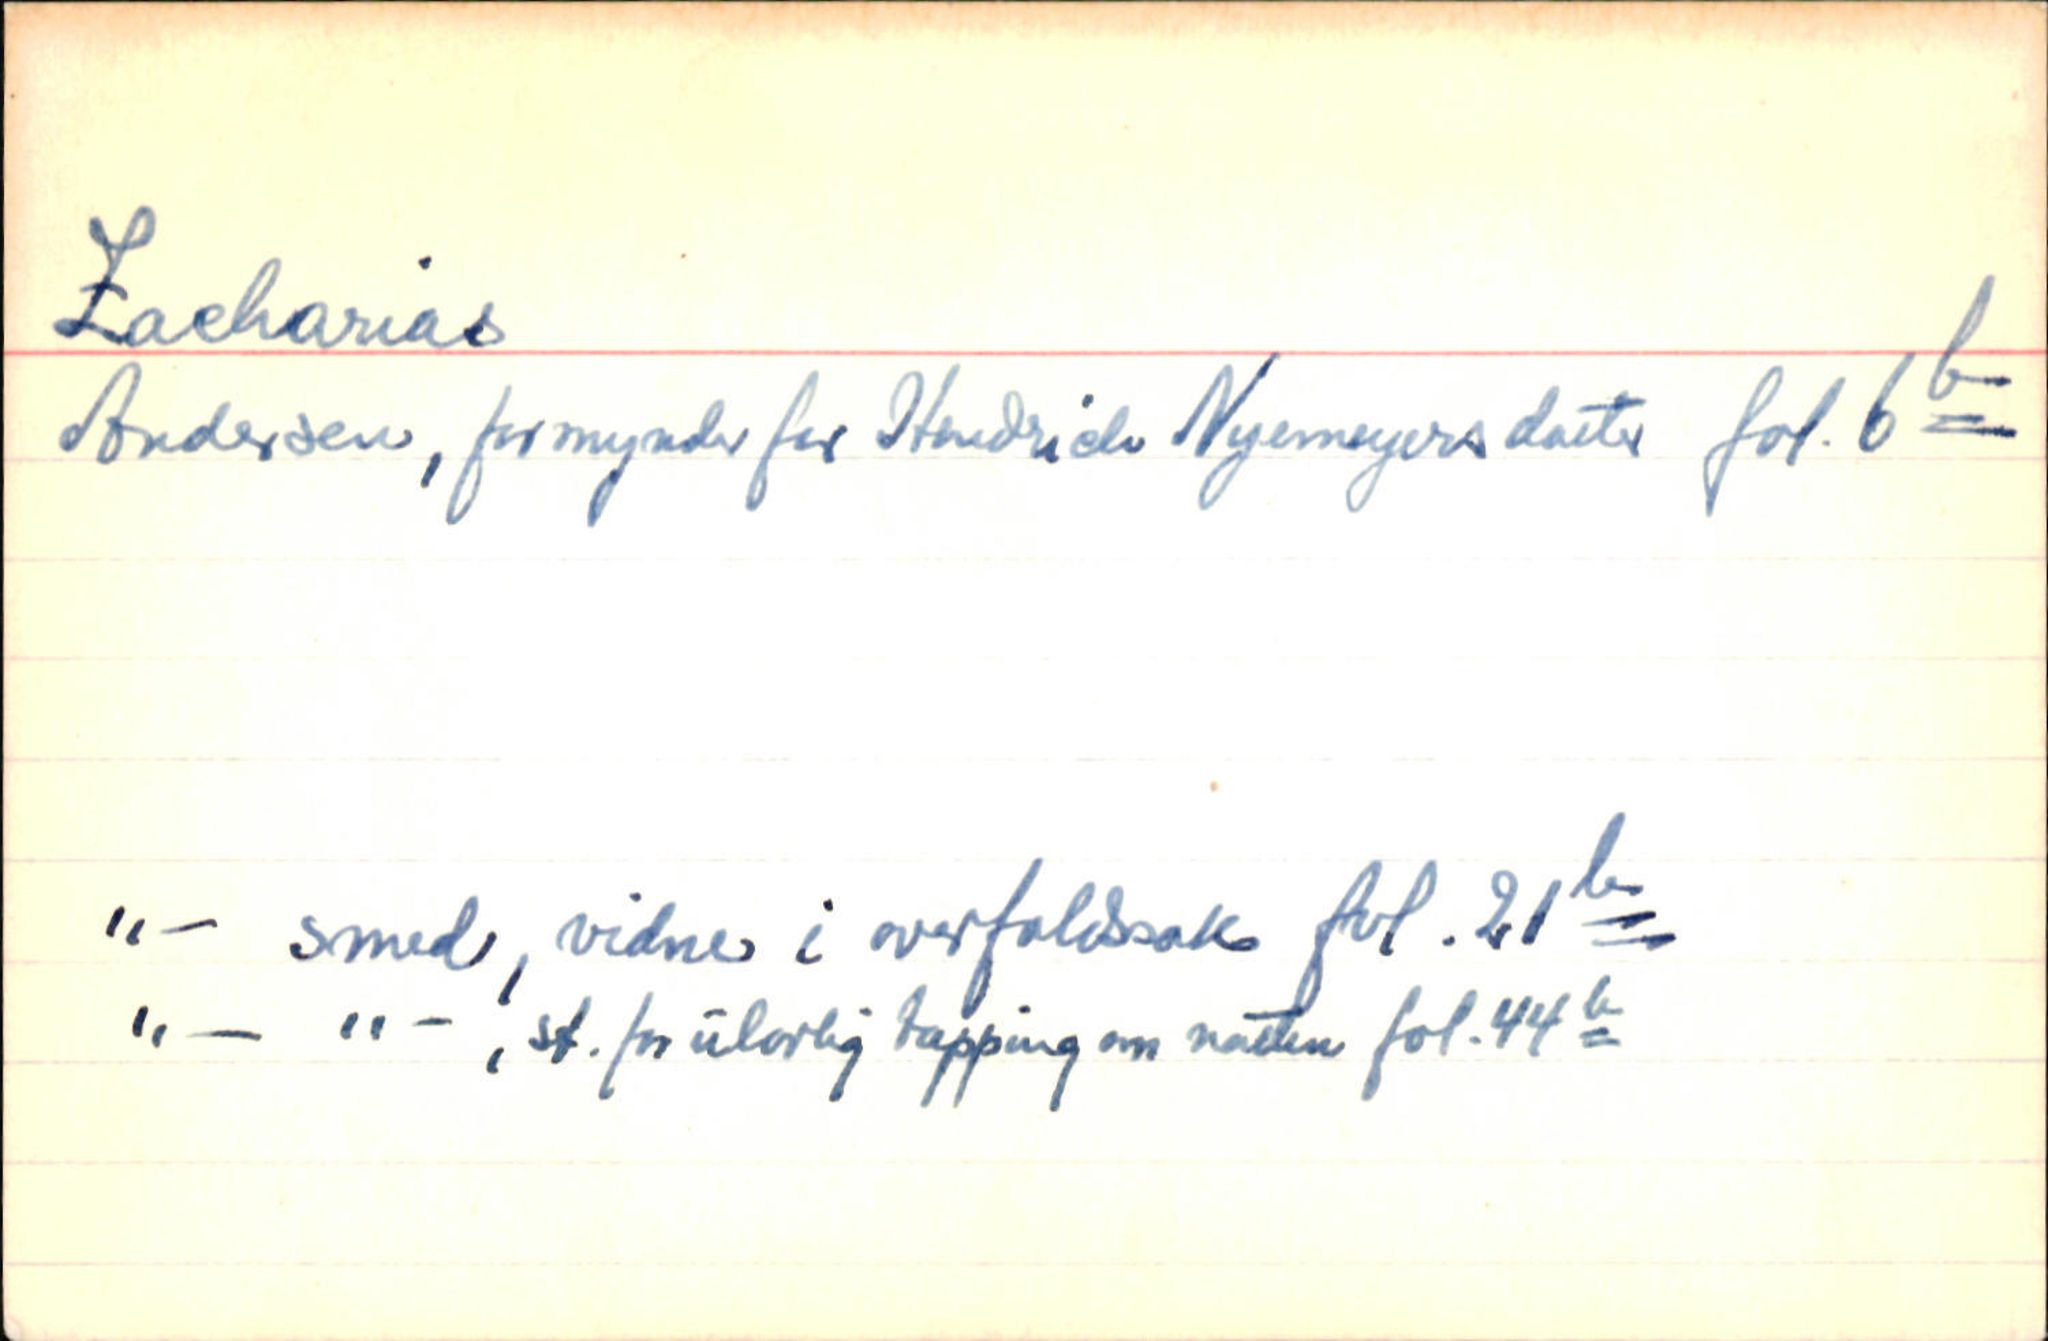 Zacharias
Andersen, formynder for Hendrich Nyemeyers datter fol. 6b
"- smed, vidne i overfaldssak fol. 21b
"- "-, st. for ulovlig tapping om natten fol. 44b